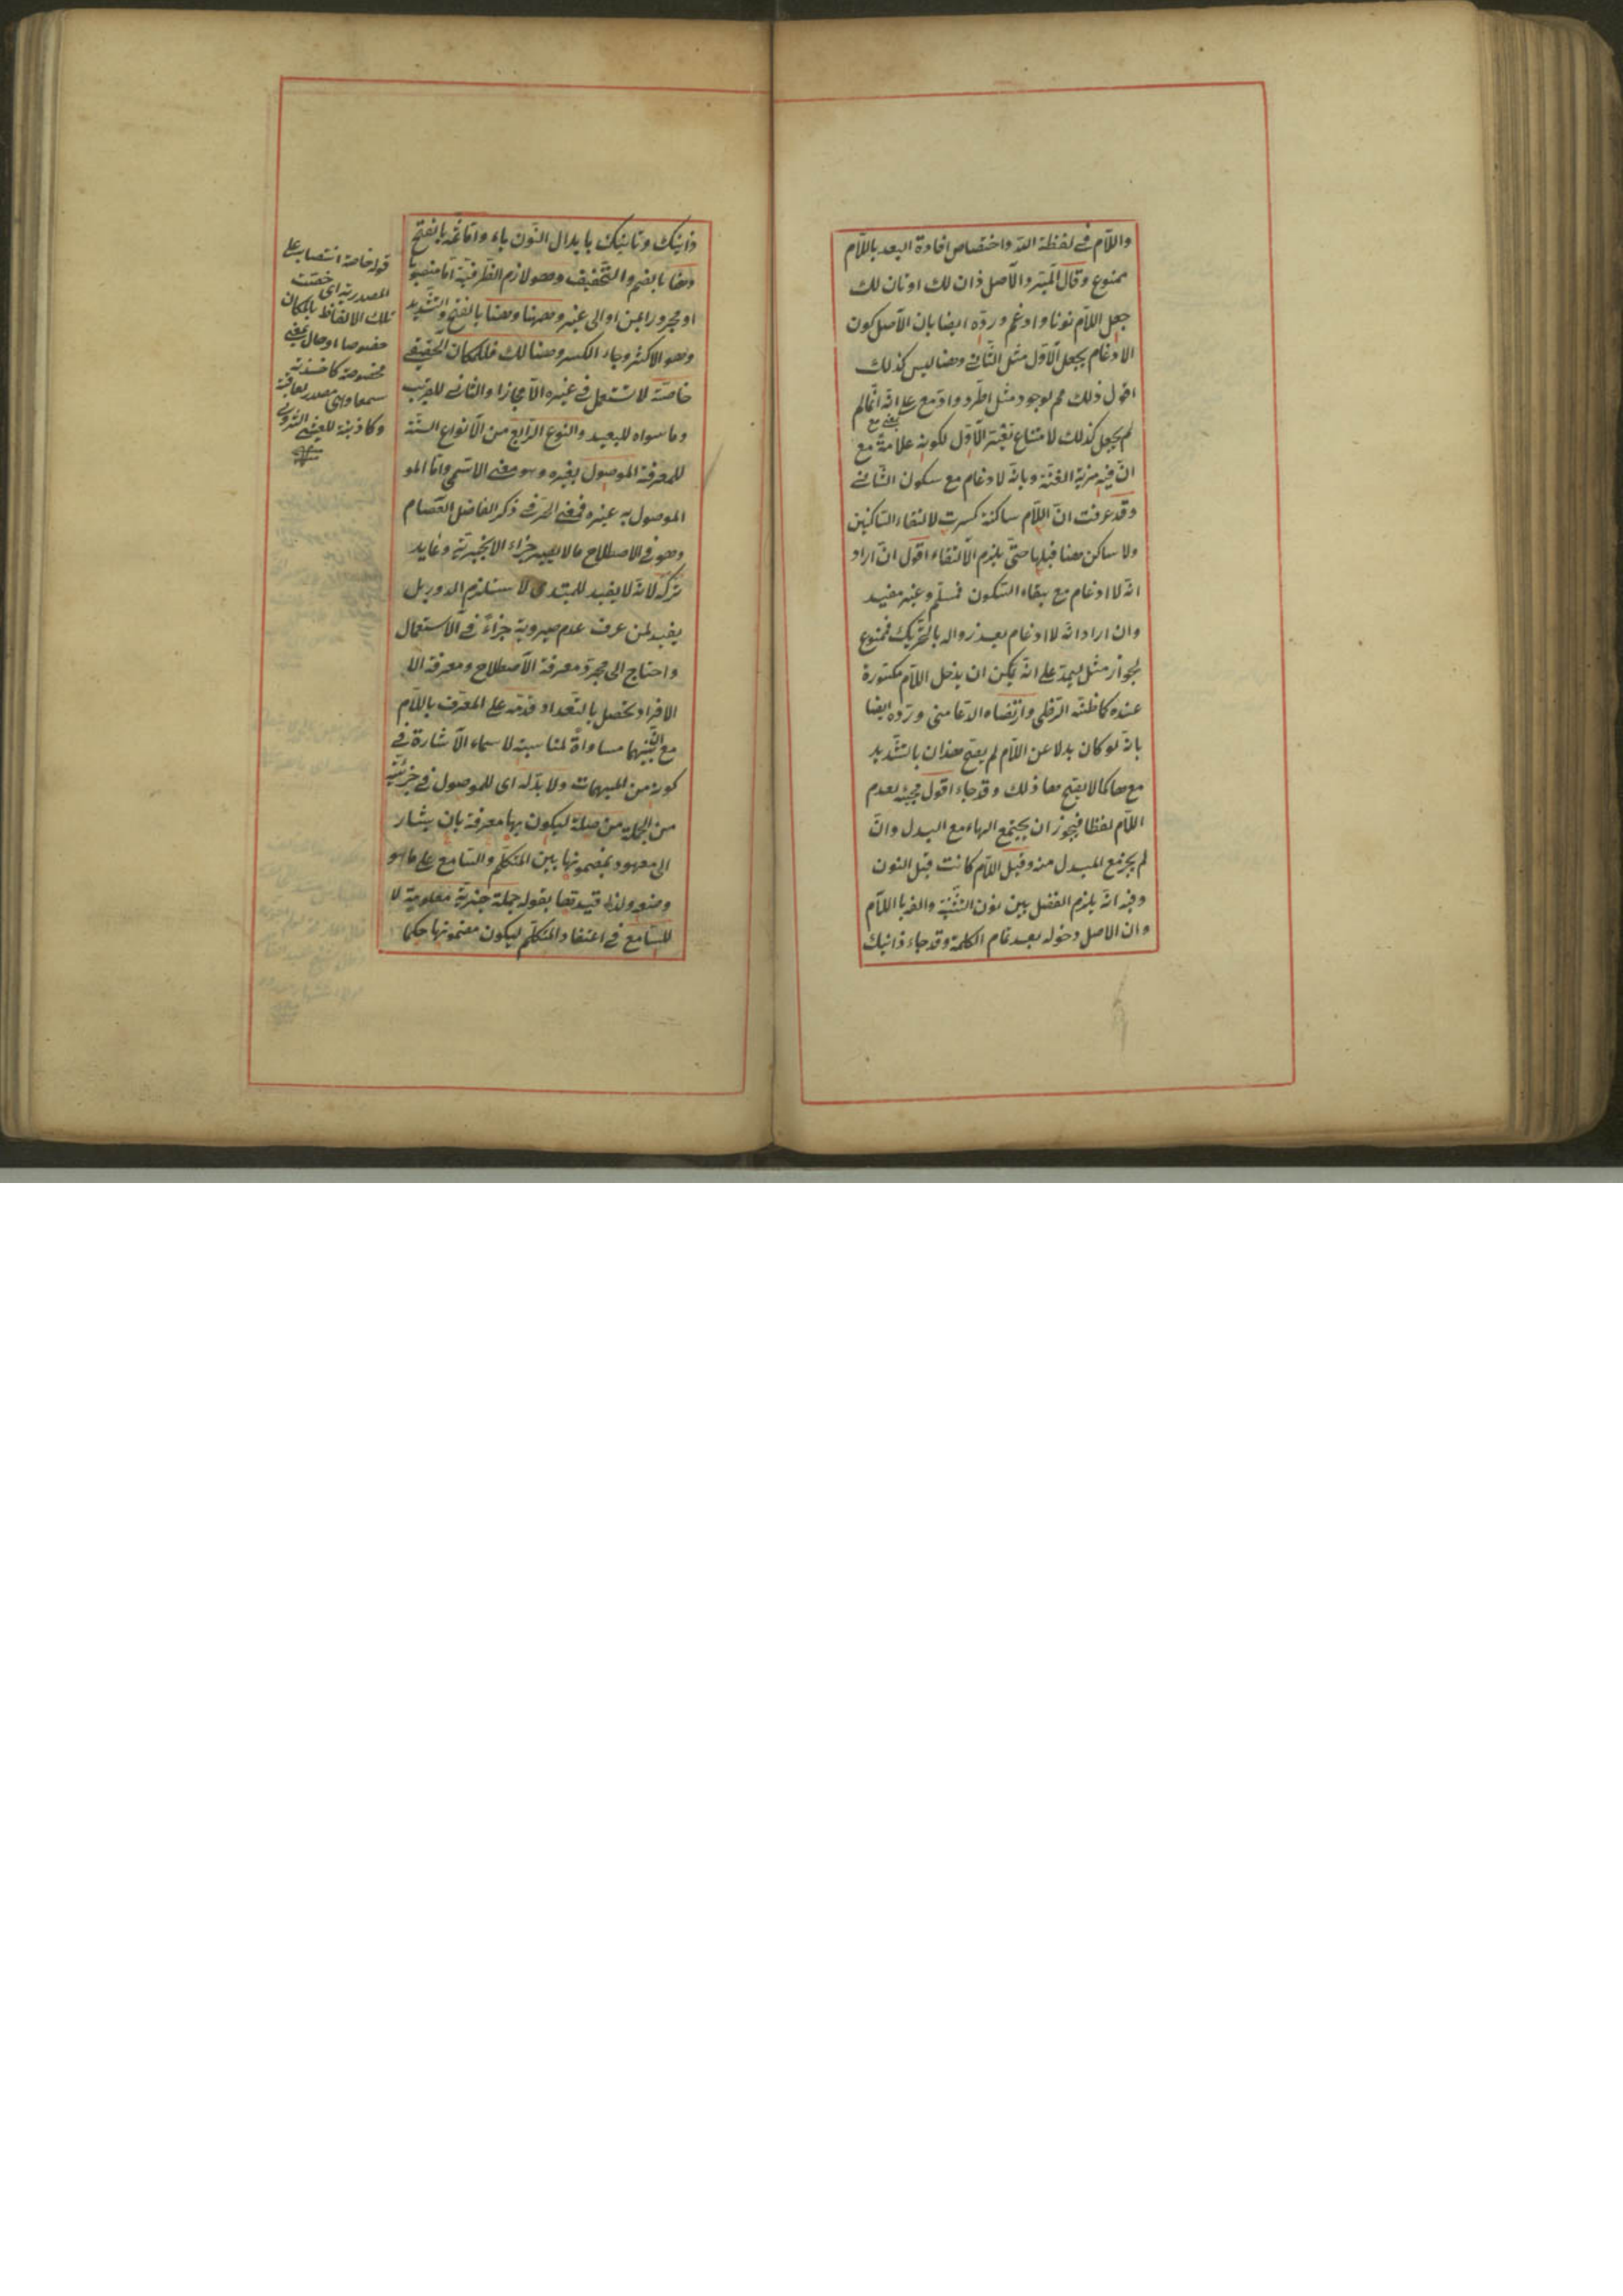 واللام في لفظة الله واختصاص افادة البعد باللام
ممنوع وقال المبرد الاصل ذان لك او تان لك
جعل اللام نونا وادغم وردّه ايضا بان الاصل كون
الادغام بجعل الاول مثل الثاني وهنا ليس كذلك
اقول ذلك مم لوجود مثل اطّرد وادّمع على انه انما لم
لم يجعل كذلك لامتناع تغير الاول لكونه علامة مع
انّ فيه مزية الغنّة وبانه لا ادغام مع سكون الثاني
وقد عرفت انّ اللام ساكنة كسرت لالتقاء الساكنين
ولا ساكن هنا قبلها حتى يلزم الالتقاء اقول ان اراد
انه لا ادغام مع بقاء السكون فمسلّم وغير مفيد
وان اراد انه لا ادغام بعد زواله بالتحريك فممنوع
لجواز مثل ليمدّ على انه يمكن ان يدخل اللام مكسورة
عنده كاظنّه الرضي وارتضاه الدمامينى وردّه ايضا
بانه لو كان بدلا عن اللام لم يصح هذان بالتشديد
مع ها كما لا يصح هاذلك وقد جاء اقول مجيئه لعدم
اللام لفظا فيجوز ان يجتمع الهاء مع البدل وان
لم يجز مع المبدل منه وقيل اللام كانت قبل النون
وفيه انه يلزم الفصل بين نون التثنية والفه باللام
وان الاصل دخوله بعد تمام الكلمة وقد جاء ذانيك
ذانيك وتانيك بابدال النون ياء وامّا ثمّه بالفتح
وهنا بالضم والتخفيف وهو لازم الظرفية امّا منصوبا
او مجرورا بمن او الى غيره وههنا وهنّا بالفتح والتشديد
وهو الاكثر وجاء الكسر وهنالك فللمكان الحقيقي
خاصّة لا تستعمل في غيره الا مجازا والثاني للقريب
وما سواه للبعيد والنوع الرابع من الانواع الستة
للمعرفة الموصول بغيره وهو معنى الاسمي وامّا المو
الموصول به غيره فمعنى الحرفي ذكر الفاضل العصام
وهو في الاصطلاح ما لا يصير جزاء الا بخبرية وعايد
تركه لانه لا يفيد للمبتدى لاستلزام الدور بل
يفيد لمن عرف عدم صيرورته جزاءً في الاستعمال
واحتاج الى مجرد معرفة الاصطلاح ومعرفة الا
الافراد تحصل بالتعداد قدّمه على المعرّف باللام
مع انّ بينهما مساواةً لمناسبة لاسماء الاشارة في
كونه من المبهمات ولا بدّ له اى للموصول في جزئيته
من الجملة من صلة ليكون بها معرفة بان يشار
الى معهود بمضمونها بين المتكلم والسامع على ما هو
وضعه ولذا قيّدها بقوله جملة خبرية معلومة لا
للسامع في اعتقاد المتكلم ليكون مضمونها حكما
قوله خاصة انتصاب على
المصدرية اى خصّت
تلك الالفاظ بالمكان
خصوصا او حال بمعنى
مخصوصة كما
سمعا وهى مصدر كعاقبة
وكاذبة